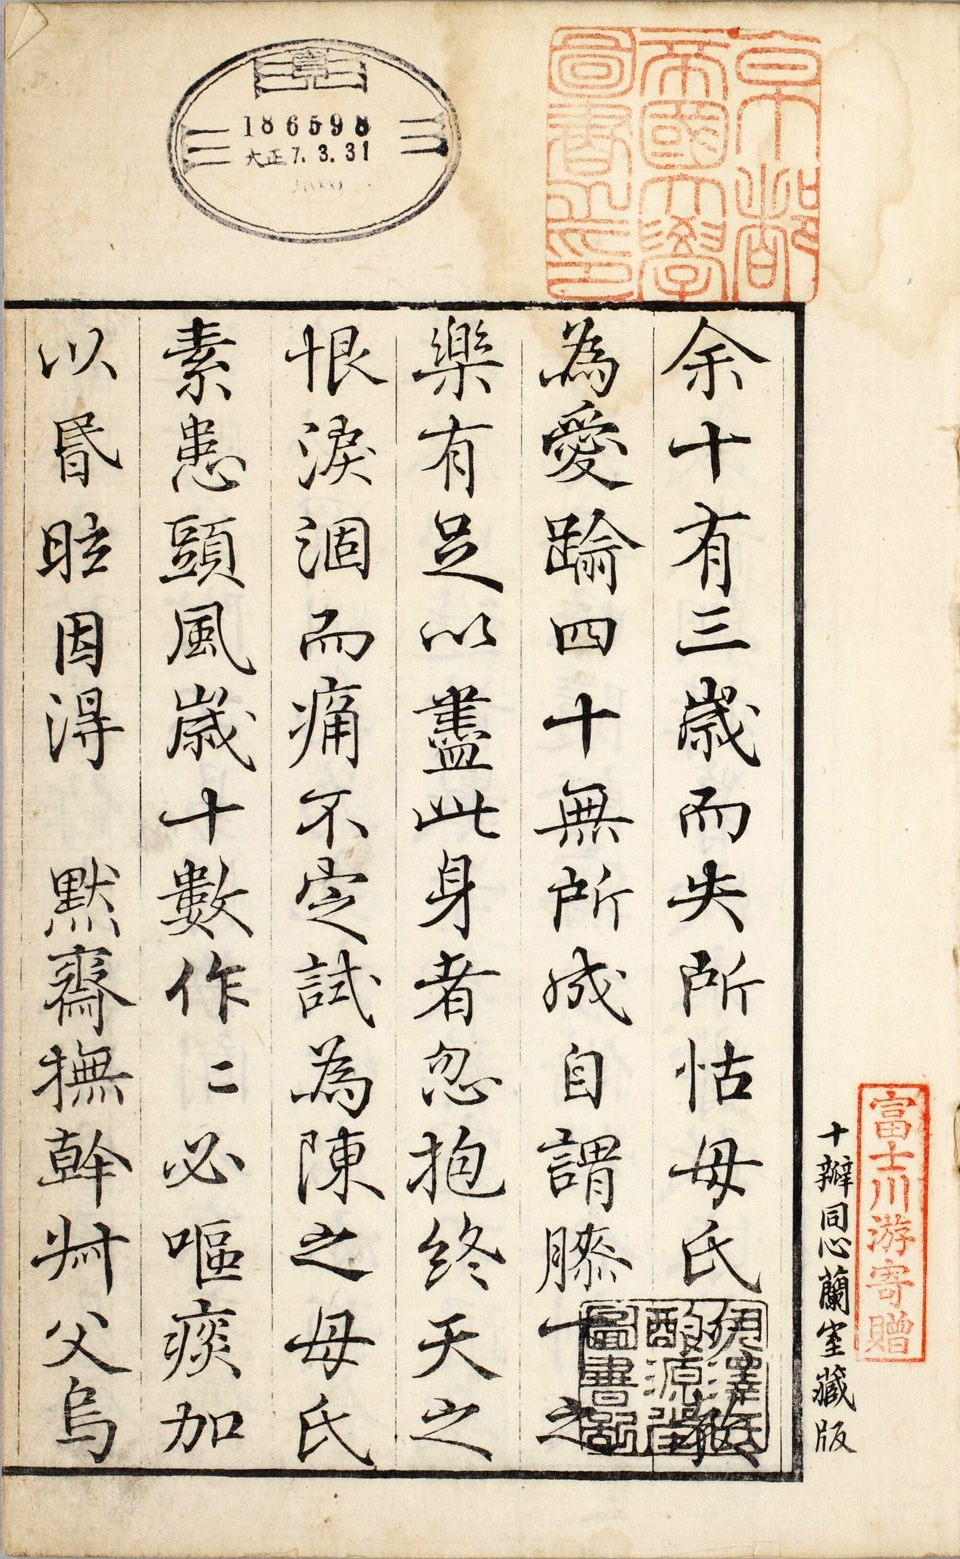 186598
大正7.3.31
京都
帝國大學
圖書之印
富士川游寄贈
十瓣同心蘭室藏版
余十有三歳而失所怙母氏
為愛踰四十無所成自謂膝下之
樂有足以盡此身者忽抱終天之
恨淚涸而痛不定試為陳之母氏
素患頭風歳十數作〻必嘔痰加
以昬眩因得 默齋撫幹艸父烏
伊澤氏
酌源堂
圖書記